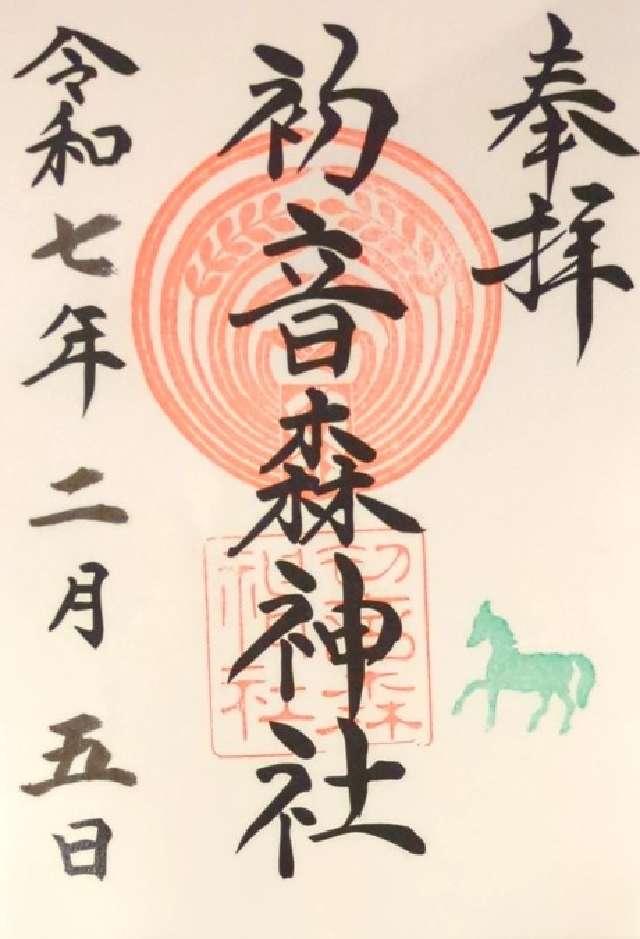 奉拝
初音森神社
初音森
神社
令和七年二月五日